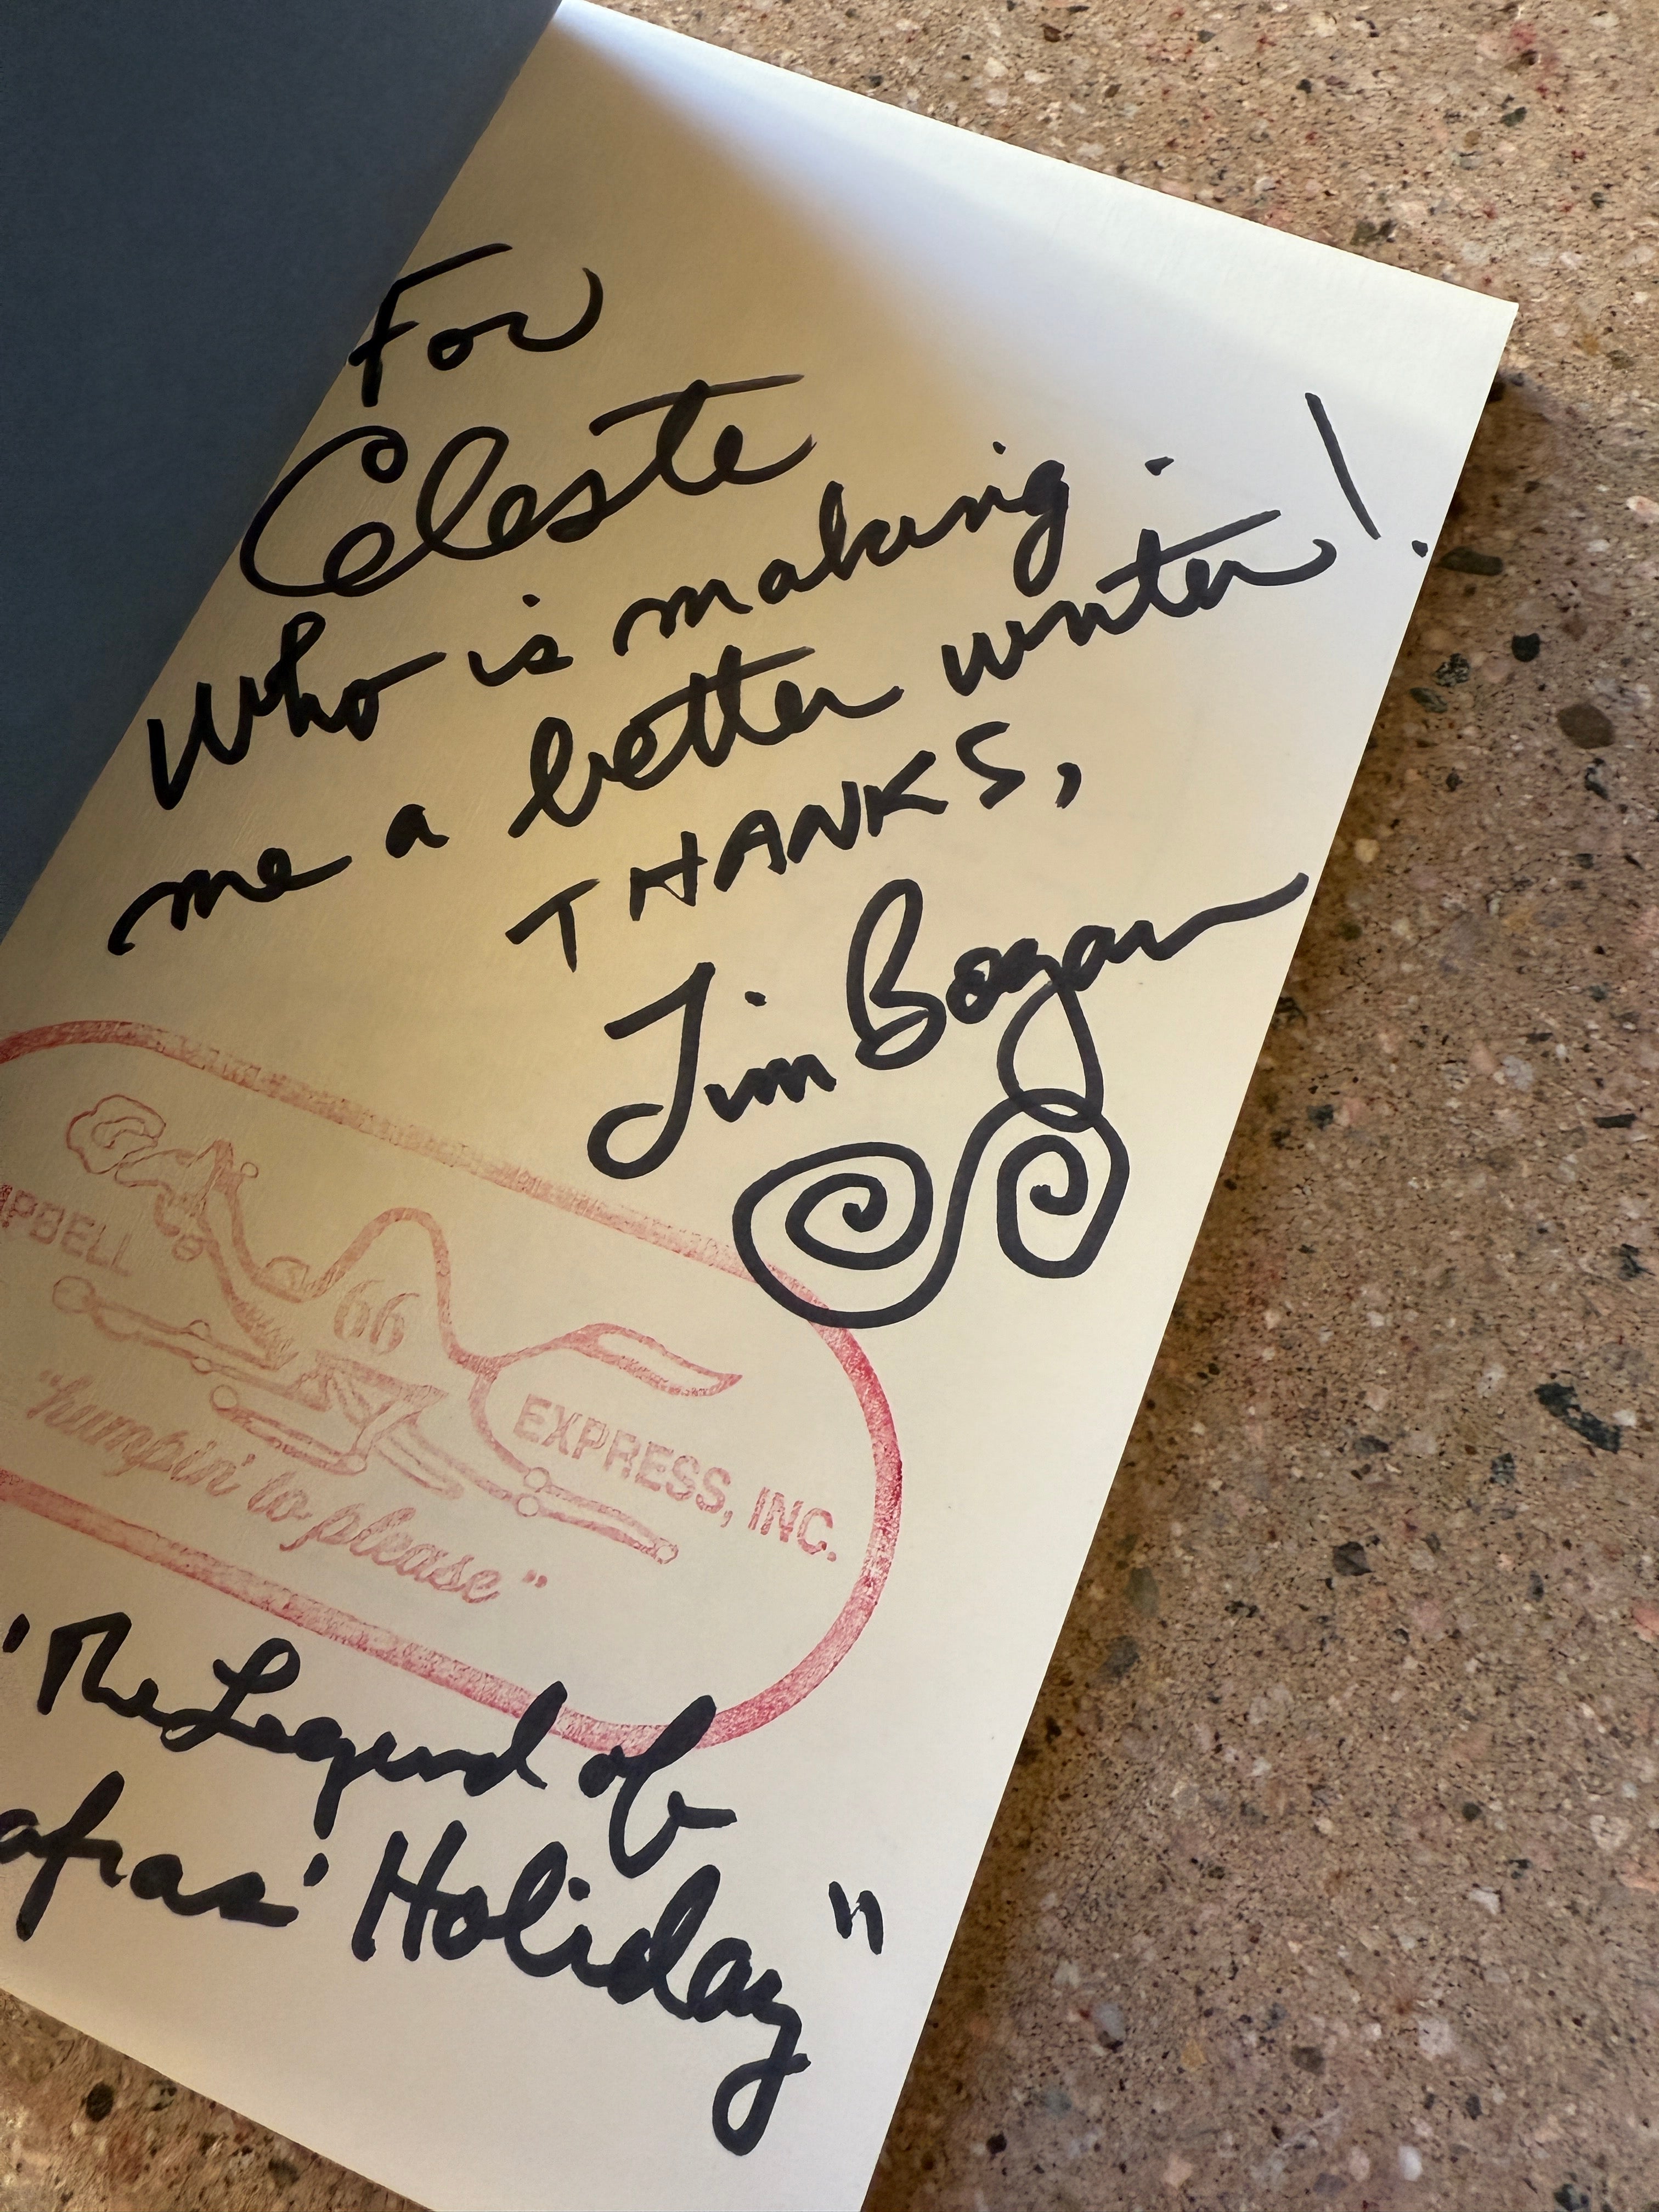 For
Celeste
Who is making
me a better writer!
THANKS,
Jim Bogan
PBELL
66
EXPRESS, INC.
"humpin' to please"
"The Legend of
afras' Holiday"